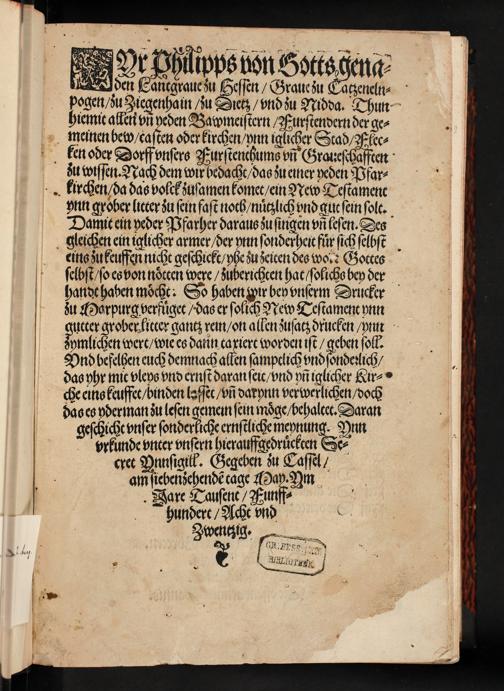 WYr Philipps von Gotts gena-
den Lantgraue zu Hessen / Graue zu Catzeneln-
pogen / zu Ziegenhain / zu Dietz / vnd zu Nidda. Thun
hiemit allen vñ yeden Bawmeistern / Furstendern der ge-
meinen bew / casten oder kirchen / ynn iglicher Stad / Flec-
ken oder Dorff vnsers Furstenthums vñ Graueschafften
zu wissen. Nach dem wir bedacht / das zu einer yeden Pfar-
kirchen / da das volck zusamen komet / ein New Testament
ynn grober litter zu sein fast noth / nützlich vnd gut sein solt.
Damit ein yeder Pfarher daraus zu singen vñ lesen. Des
gleichen ein iglicher armer / der ynn sonderheit für sich selbst
eins zu keuffen nicht geschickt / yhe zu zeiten des Gottes
selbst / so es von nötten were / zuberichten hat / solichs bey der
hande haben möcht: So haben wir bey vnserm Drucker
zu Marpurg verfüget / das er solich New Testament ynn
gutter grober litter gantz rein / on allen zusatz drucken / ynn
zymlichen wert / wie es darin taxiret worden ist / geben soll.
Vnd befelhen euch demnach allen sampelich vnd sonderlich /
das yhr mit vleys vnd ernst daran seit / vnd yñ iglicher Kir-
che eins keuffet / binden lasset / vñ darynn verwerlichen / doch
das es yderman zu lesen gemein sein möge / behaltet. Daran
geschicht vnser sonderliche ernstliche meynung. Ynn
vrkunde vnter vnsern hierauffgedrückten Se-
cret Ynnsigill. Gegeben zu Cassel /
am siebenzehendē tage May. Ym
Jare Tausent / Funff-
hundert / Acht vnd
Zwentzig.
BIBLIOTHEK